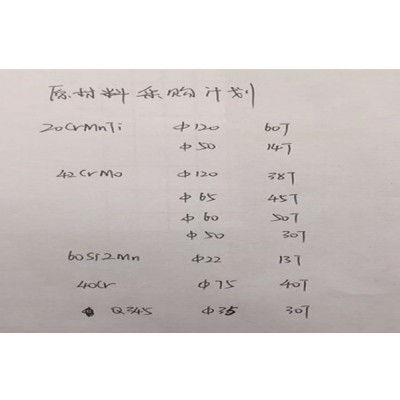 原材料采购计划
20CrMnTi Φ120 60T
Φ50 14T
42CrMo Φ120 38T
Φ65 45T
Φ60 50T
Φ50 30T
60Si2Mn Φ22 13T
40Cr Φ75 40T
Q345 Φ35 30T